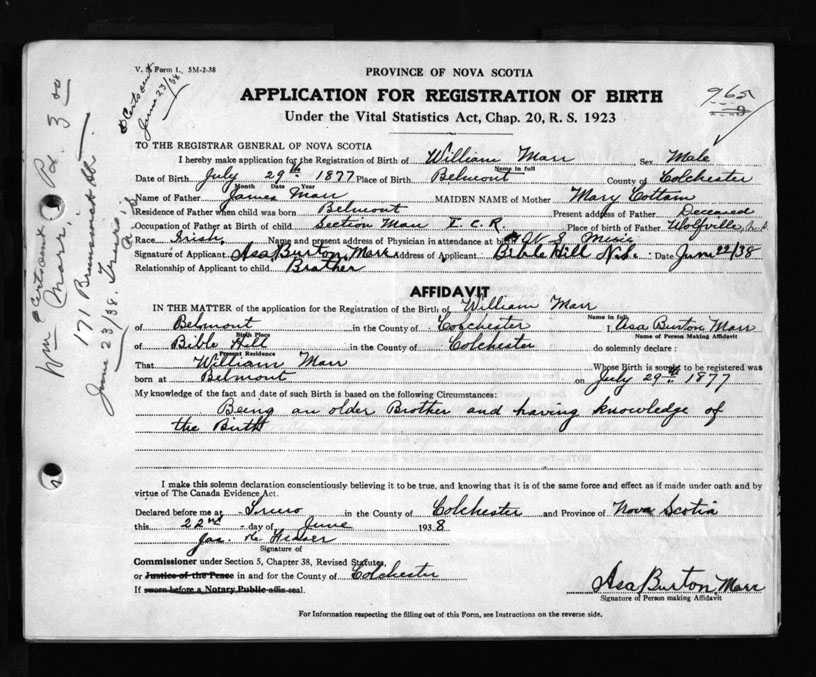 V. S. Form 1. 5M-2-38
PROVINCE OF NOVA SCOTIA
APPLICATION FOR REGISTRATION OF BIRTH
Under the Vital Statistics Act, Chap. 20, R. S. 1923
965
June 23/38
TO THE REGISTRAR GENERAL OF NOVA SCOTIA
I hereby make application for the Registration of Birth of William Marr Sex Male
Name in full
Date of Birth July 29th 1877 Place of Birth Belmont County of Colchester
Month Date Year
Name of Father James Marr MAIDEN NAME of Mother Mary Cottam
Residence of Father when child was born Belmont Present address of Father Deceased
Occupation of Father at Birth of child Section Man I.C.R. Place of birth of Father Wolfville, N.S.
Race Irish Name and present address of Physician in attendance at birth
Signature of Applicant Asa Burton Marr Address of Applicant Bible Hill N.S. Date June 22/38
Relationship of Applicant to child Brother
AFFIDAVIT
IN THE MATTER of the application for the Registration of the Birth of William Marr
Name in full
of Belmont in the County of Colchester I, Asa Burton Marr
Birth Place Name of Person Making Affidavit
of Bible Hill in the County of Colchester do solemnly declare :
Present Residence
That William Marr Whose Birth is sought to be registered was
born at Belmont on July 29th 1877
My knowledge of the fact and date of such Birth is based on the following Circumstances:
Being an older Brother and having knowledge of
the Birth
I make this solemn declaration conscientiously believing it to be true, and knowing that it is of the same force and effect as if made under oath and by
virtue of The Canada Evidence Act.
Declared before me at Truro in the County of Colchester and Province of Nova Scotia
this 22nd day of June 1938
Jas.
Signature of
Commissioner under Section 5, Chapter 38, Revised Statutes,
or Justice of the Peace in and for the County of Colchester
If sworn before a Notary Public affix seal.
Asa Burton Marr
Signature of Person making Affidavit
For Information respecting the filling out of this Form, see Instructions on the reverse side.
Wm Marr
171 Brunswick St.
June 23/38. Truro N.S.